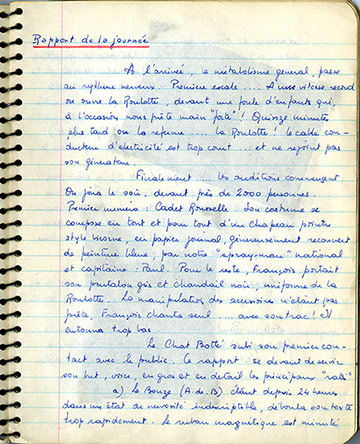 Rapport de la journée
A l'arrivée, le métabolisme général, passe
au rythme nerveux. Première escale .... A une vitesse record
on ouvre la Roulotte, devant une foule d'enfants qui,
à l'occasion nous prête main "forte"! Quinze minutes
plus tard on la referme .... la Roulotte! le cable con-
ducteur d'électricité est trop court .... et ne rejoint pas
son générateur.
Finalement .... les auditions commencent
On joua le soir, devant près de 2000 personnes.
Premier numéro: Cadet Rousselle. Son costume se
compose en tout et pour tout d'un chapeau pointu
style licorne, en papier journal, généreusement recouvert
de peinture bleue, par notre "spray-man" national
et capitaine: Paul. Pour le reste, François portait
son pantalon gris et chandail noir, uniforme de la
Roulotte. La manipulation des accessoires n'étant pas
prête, François chanta seul .... avec son trac! Il
entonna trop bas.
Le Chat Botté subi son premier con-
tact avec le public. Le rapport se devant de servir
son but, voici, en gros et en détail les principaux "ratés"
a) Le Bonze (A. de B) étant depuis 24 heures
dans un état de nervosité indescriptible, déboula son texte
trop rapidement. Le ruban magnétique est minuté,